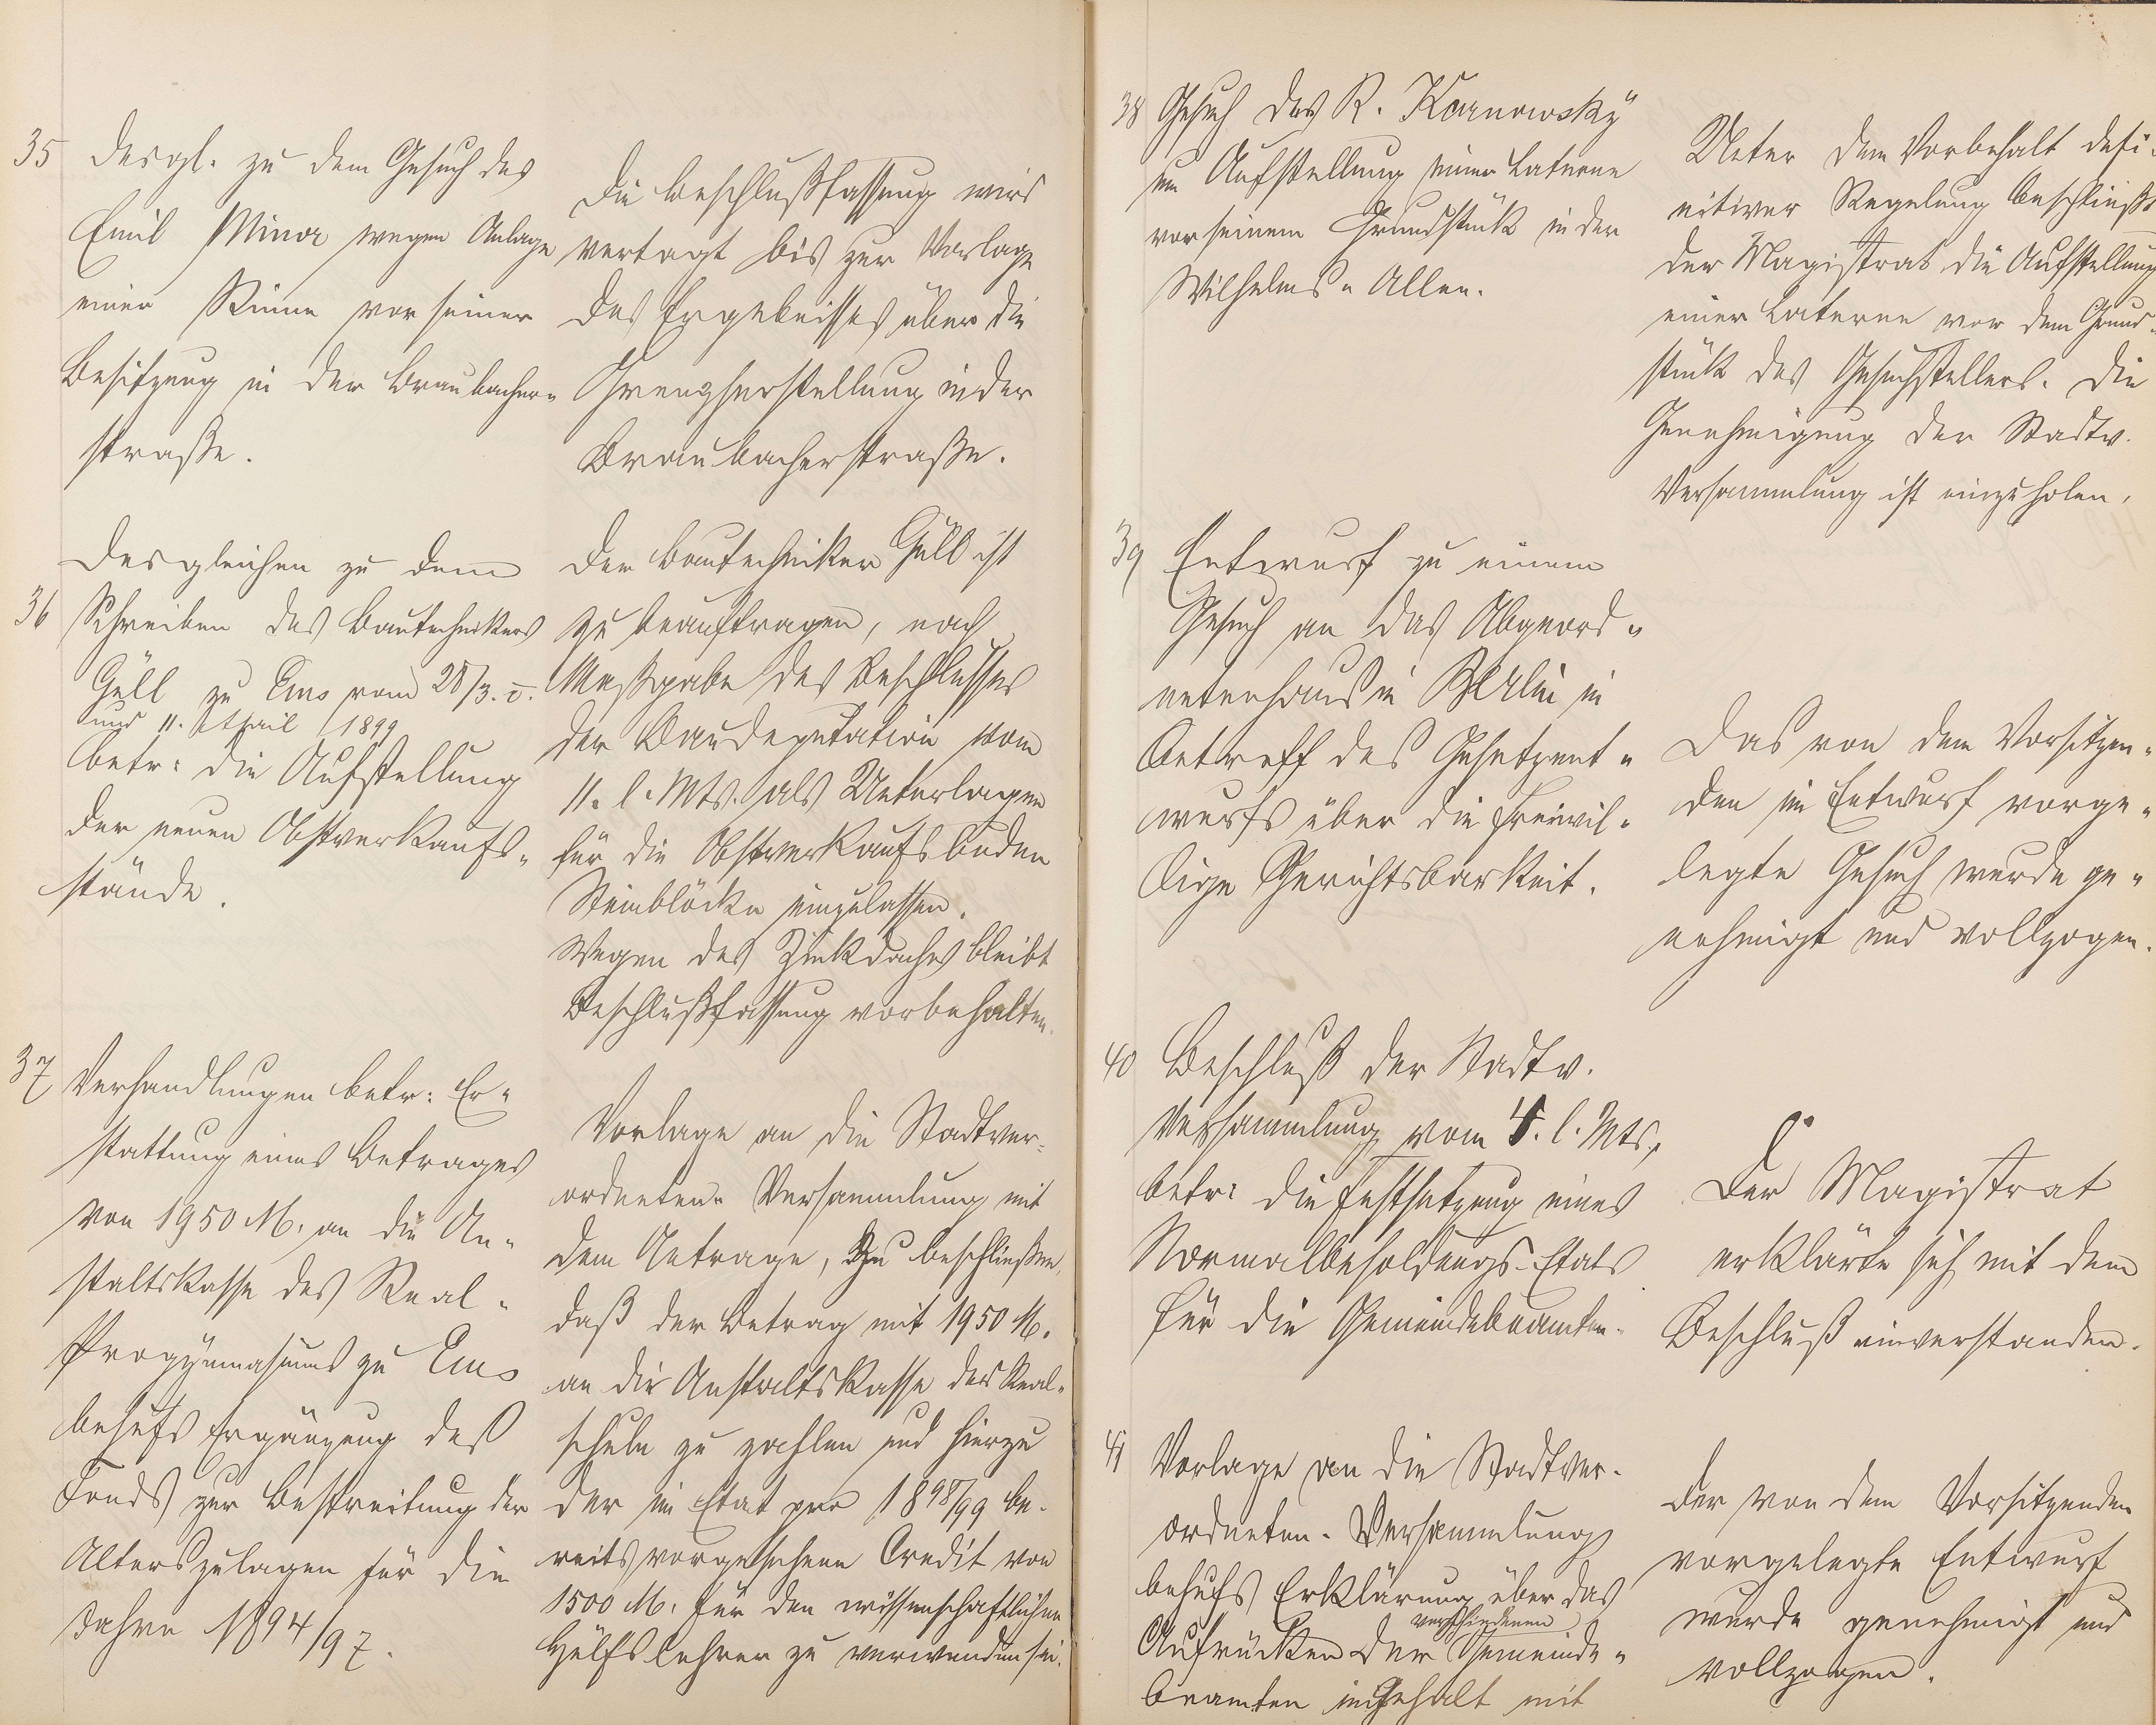 35 desgl. zu dem Gesuch des
Emil Minor wegen Anlage
einer Rinne vor seiner
Besitzung in der Braubacher-
straße.
Die Beschlußfassung wird
vertagt bis zur Vorlage
des Ergebnisses über die
Grenzherstellung in der
Braubacherstraße.
Desgleichen zu dem
36 Schreiben des Bautechnikers
Güll zu Ems vom 28/3.
und 11. April 1899
betr: die Aufstellung
der neuen Obstverkaufs-
stände.
Der Bautechniker Güll ist
zu beauftragen, nach
Maßgabe des Beschlusses
der Baudeputation vom
11. l. Mts. als Unterlagen
für die Obstverkaufsbuden
Steinblöcke einzulassen.
Wegen des Zinkdaches bleibt
Beschlußfassung vorbehalten.
37 Verhandlungen betr: Er-
stattung eines Betrages
von 1950 M. an die An-
staltskasse des Real-
Progymnasiums zu Ems
behufs Ergänzung deß
Fonds zur Bestreitung der
Alterszulagen für die
Jahre 1894/97.
Vorlage an die Stadtver-
ordneten-Versammlung mit
dem Antrage, zu beschließen,
daß der Betrag mit 1950 M.
an die Anstaltskasse der Real-
schule zu zahlen und hierzu
der im Etat pro 1898/99 be-
reits vorgesehene Credit von
1500 M. für den wissenschaftlichen
Hülfslehrer zu verwenden sei.
38 Gesuch des R. Karnowsky
um Aufstellung einer Laterne
vor seinem Grundstück in der
Wilhelms-Allee.
Unter dem Vorbehalt defi-
nitiver Regelung beschließt
der Magistrat die Aufstellung
einer Laterne vor dem Grund-
stück des Gesuchstellers. Die
Genehmigung der Stadtv.
Versammlung ist einzuholen.
39 Entwurf zu einem
Gesuch an das Abgeord-
netenhaus in Berlin in
Betreff des Gesetzent-
wurfs über die freiwil-
lige Gerichtsbarkeit.
Das von dem Vorsitzen-
den im Entwurf vorge-
legte Gesuch wurde ge-
nehmigt und vollzogen.
40 Beschluß der Stadtv.
Versammlung vom 4. l. Mts.,
betr: die Festsetzung eines
Normalbesoldungs-Etats
für die Gemeindebeamten.
Der Magistrat
erklärte sich mit dem
Beschluß einverstanden.
41 Vorlage an die Stadtver-
ordneten-Versammlung
behufs Erklärung über das
verschiedenen
Aufrücken der Gemeinde-
beamten im Gehalt mit
Der von dem Vorsitzenden
vorgelegte Entwurf
wurde genehmigt und
vollzogen.